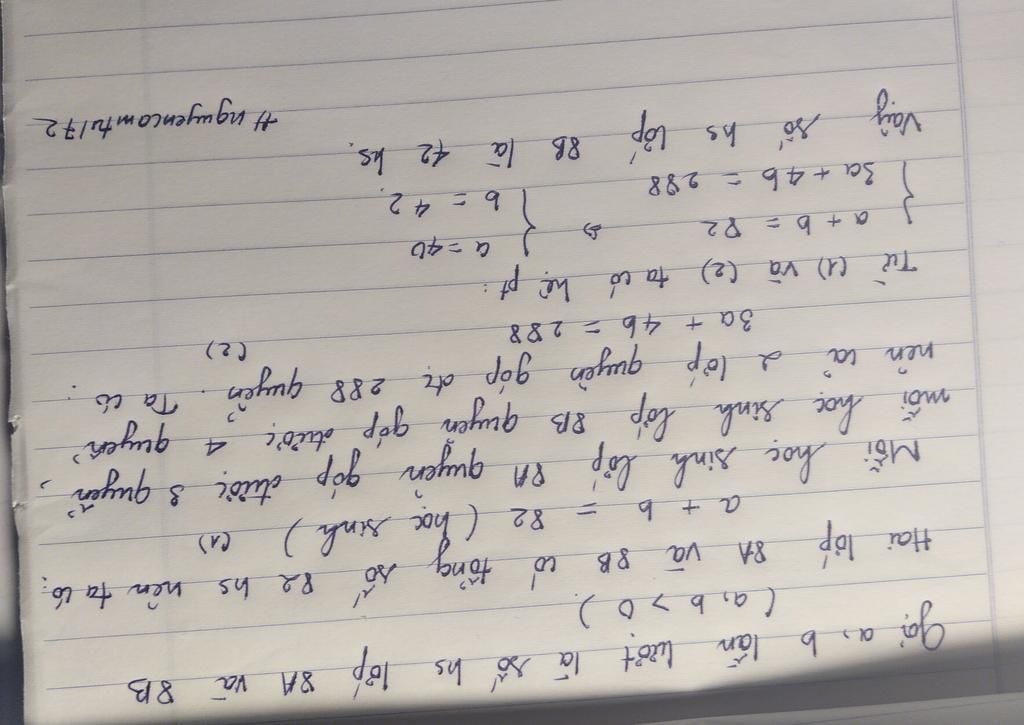 Gọi a, b lần lượt là số hs lớp 8A và 8B
(a, b > 0).
Hai lớp 8A và 8B có tổng số 82 hs nên ta có:
a + b = 82 (học sinh) (1)
Mỗi học sinh lớp 8A quyên góp được 3 quyển,
mỗi học sinh lớp 8B quyên góp được 4 quyển
nên cả 2 lớp quyên góp đc 288 quyển. Ta có:
3a + 4b = 288 (2)
Từ (1) và (2) ta có hệ pt:
{ a + b = 82 ⇒ { a = 40
{ 3a + 4b = 288 { b = 42.
Vậy số hs lớp 8B là 42 hs.
#nguyencamtu172